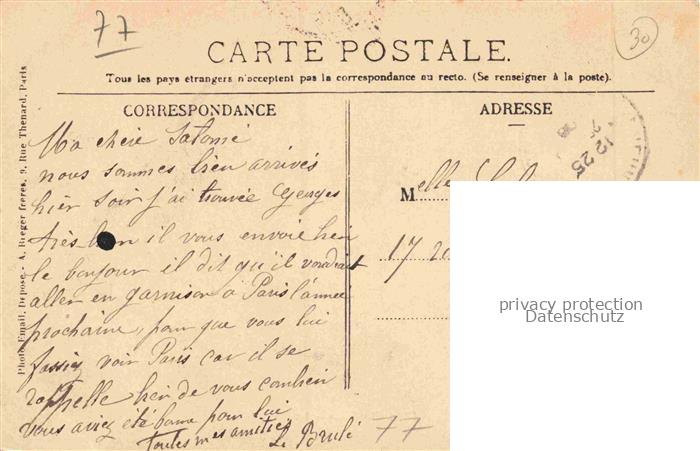 77
30
CARTE POSTALE.
Tous les pays étrangers n'acceptent pas la correspondance au recto. (Se renseigner à la poste).
CORRESPONDANCE
ADRESSE
Ma chère Salomé
nous sommes bien arrivés
hier soir j'ai trouvée Georges
très bien il vous envoie bien
le bonjour il dit qu'il voudrait
aller en garnison à Paris l'année
prochaine, pour que vous lui
fassiez voir Paris car il se
rappelle bien de vous combien
vous aviez été bonne pour lui
Toutes mes amitiés
Le Brulé
77
Melle
17
12 25
Photo Email, Déposé - A. Rieger frères, 9, Rue Thenard, Paris
privacy protection
Datenschutz